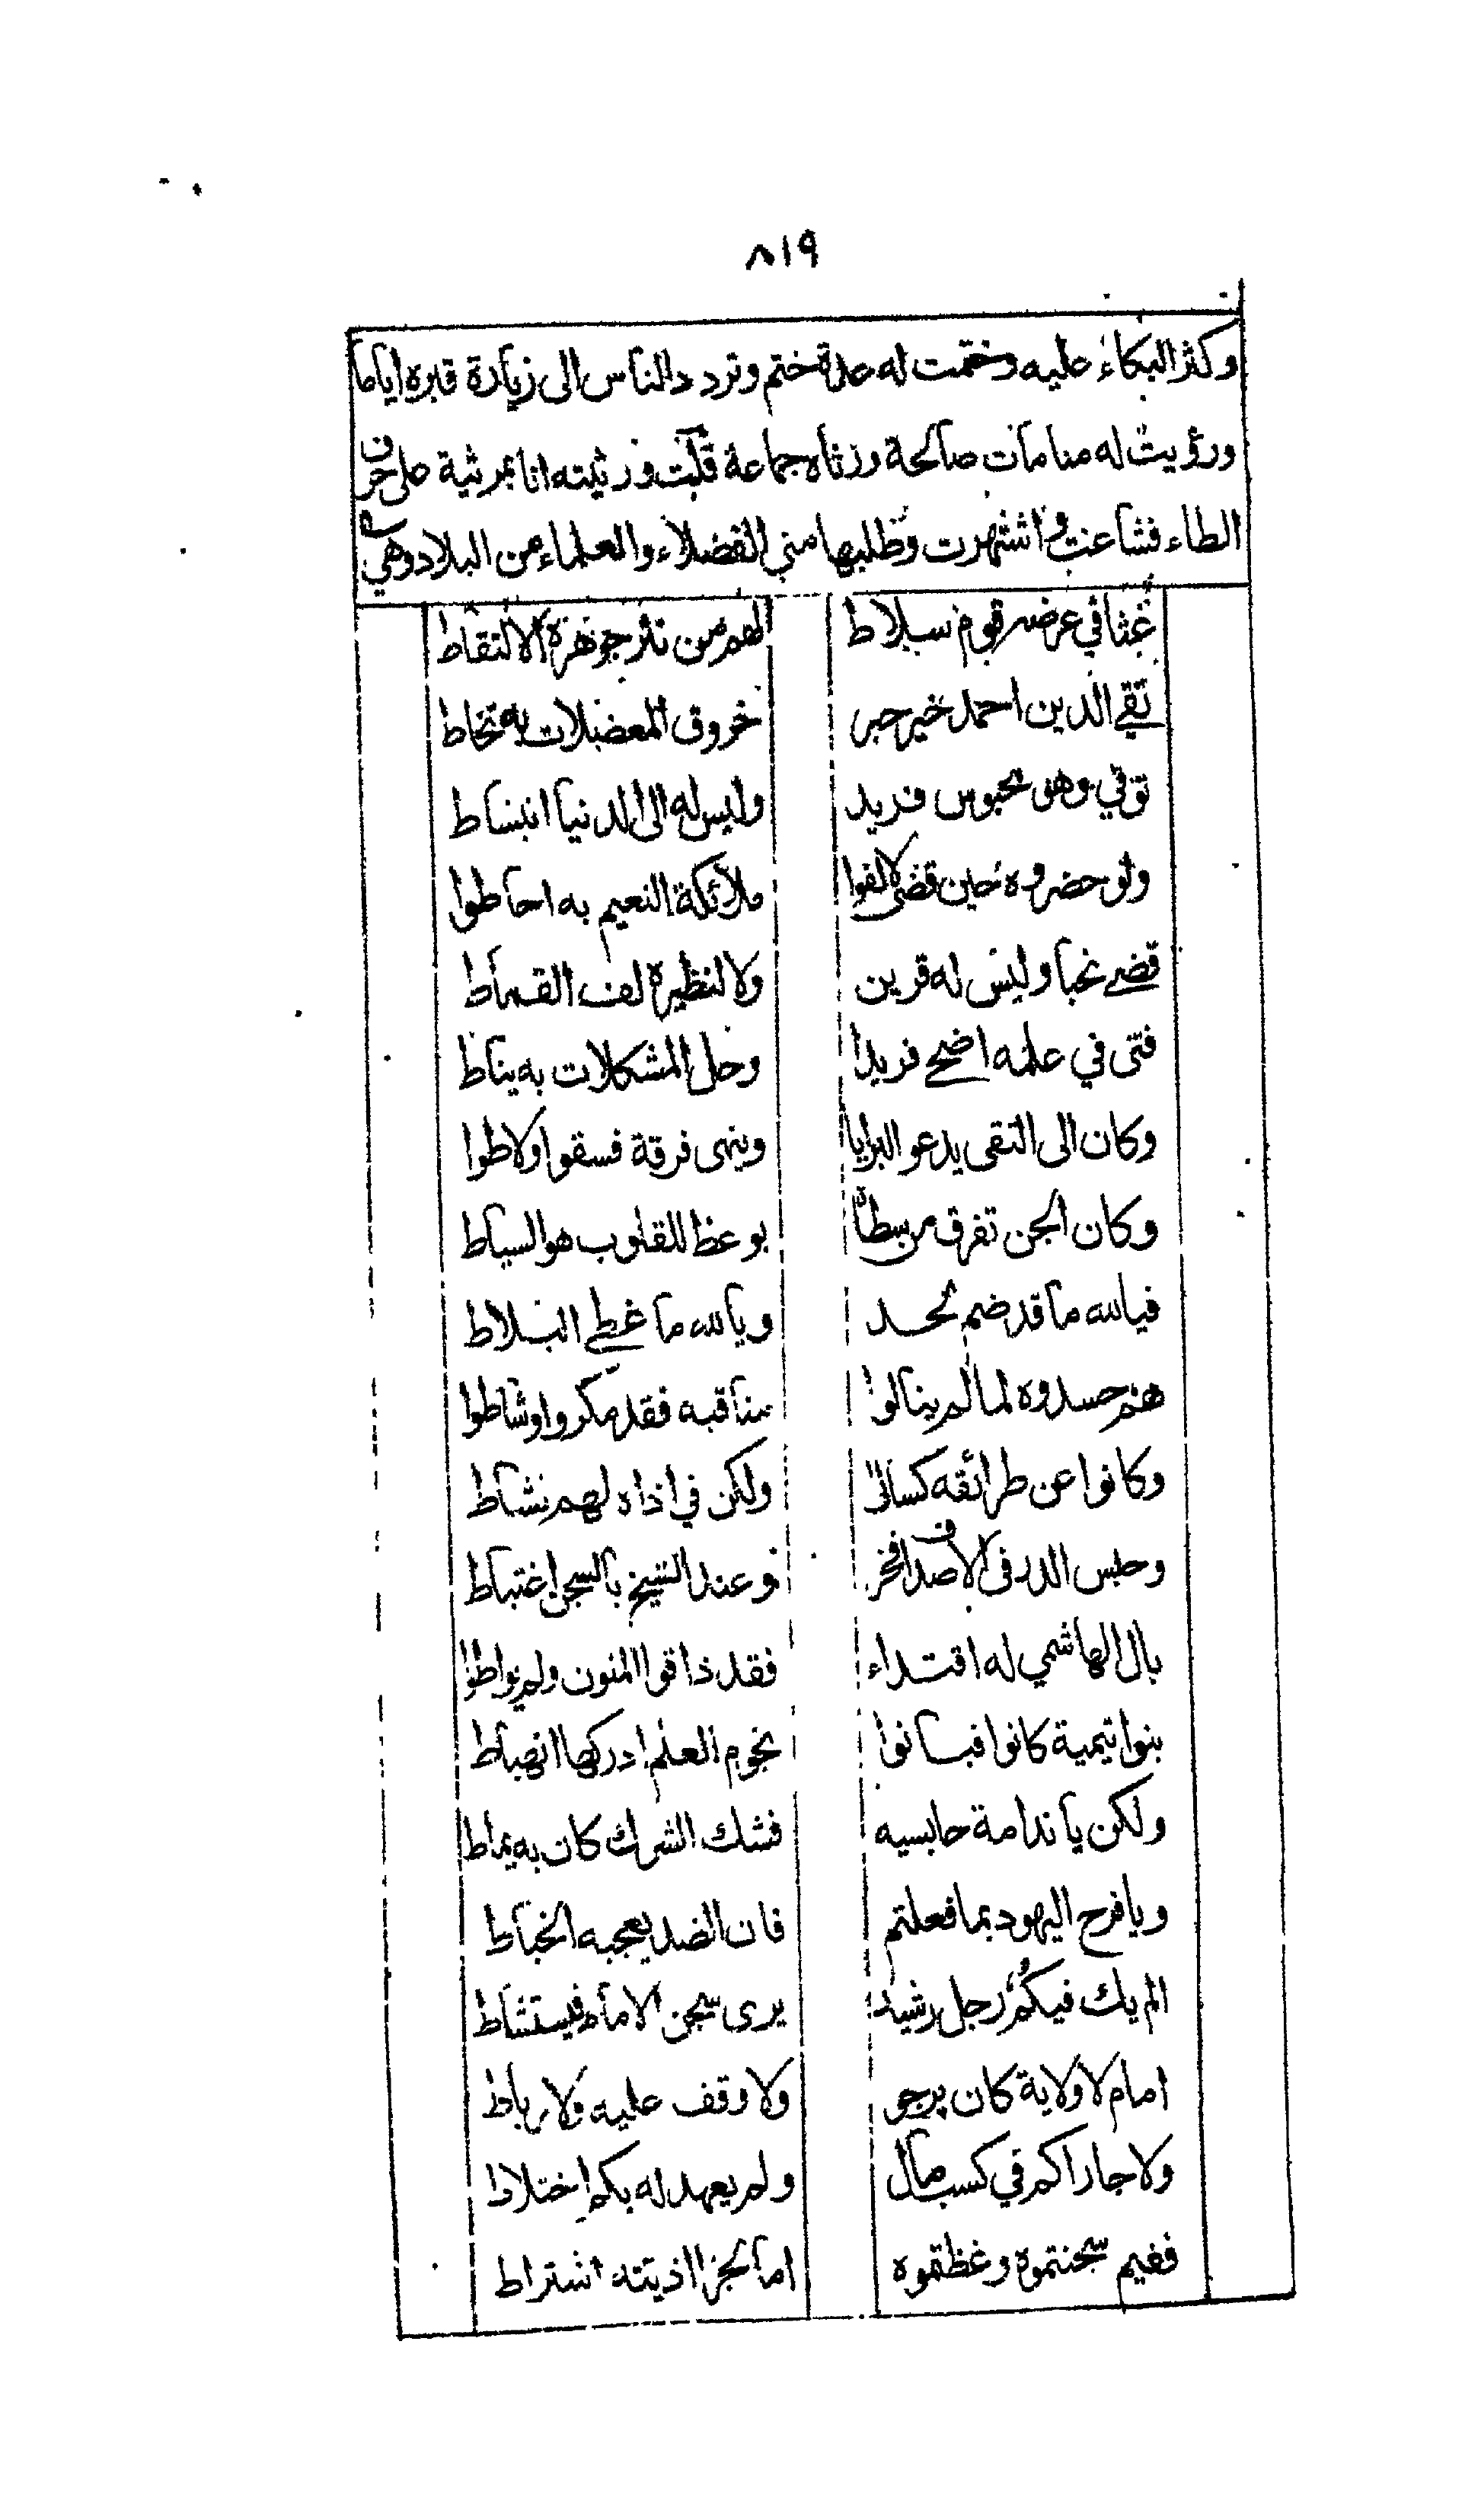 ٨١٩
وكثر البكاء عليه وختمت له عدة ختم وتردد الناس الى زيارة قبره اياما
ورؤيت له منامات صالحة ورثاه جماعة قلت ورثيته انا بمرثية على حرف
الطاء فشاعت واشتهرت وطلبها مني الفضلاء والعلماء من البلاد وهي
عثا في عرضه قوم سلاط لهم من نثر جوهره الالتقاط
تقي الدين احمد خير حبر خروق المعضلات به تخاط
توفي وهو محبوس فريد وليس له الى الدنيا انبساط
ولو حضروه حين قضى لالفوا ملائكة النعيم به احاطوا
قضى نحبا وليس له قرين ولا لنظيره لف القماط
فتى في علمه اضحى فريدا وحل المشكلات به يناط
وكان الى التقى يدعو البرايا وينهى فرقة فسقوا ولاطوا
وكان الجن تفرق من سطاه بوعظ للقلوب هو السياط
فيالله ما قد ضم لحد ويالله ما غطى البلاط
هم حسدوه لما لم ينالوا مناقبه فقد مكروا وشاطوا
وكانوا عن طرائقه كسالى ولكن في اذاه لهم نشاط
وحبس الدر في الاصداف فخر وعند الشيخ بالسجن اغتباط
بال الهاشمي له اقتداء فقد ذاقوا المنون ولم يواطوا
بنوا تيمية كانوا فبانوا نجوم العلم ادركها انهباط
ولكن يا ندامة حابسيه فشك الشرك كان به يماط
ويا فرح اليهود بما فعلتم فان الضد يعجبه الخباط
الم يك فيكم رجل رشيد يرى سجن الامام فيستشاط
امام لا ولاية كان يرجو ولا وقف عليه ولا رباط
ولا جاراكم في كسب مال ولم يعهد له بكم اختلاط
ففيم سجنتموه وغظتموه اما لجزا اذيته اشتراط